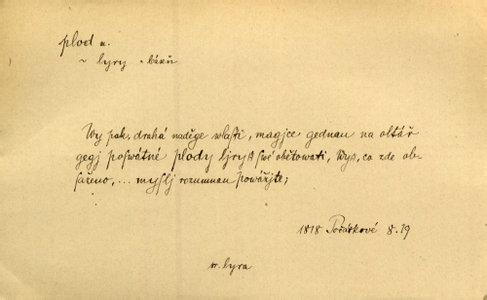 plod u.
~ lyry - básň
Wy pak, drahá naděge wlasti, magjce gednau na oltář
gegj poswátné plody ljry swé obětowati, Wy, co zde ob-
saženo, ... myslj rozumnau powážjte;
1818 Počátkové 8.19
w. lyra